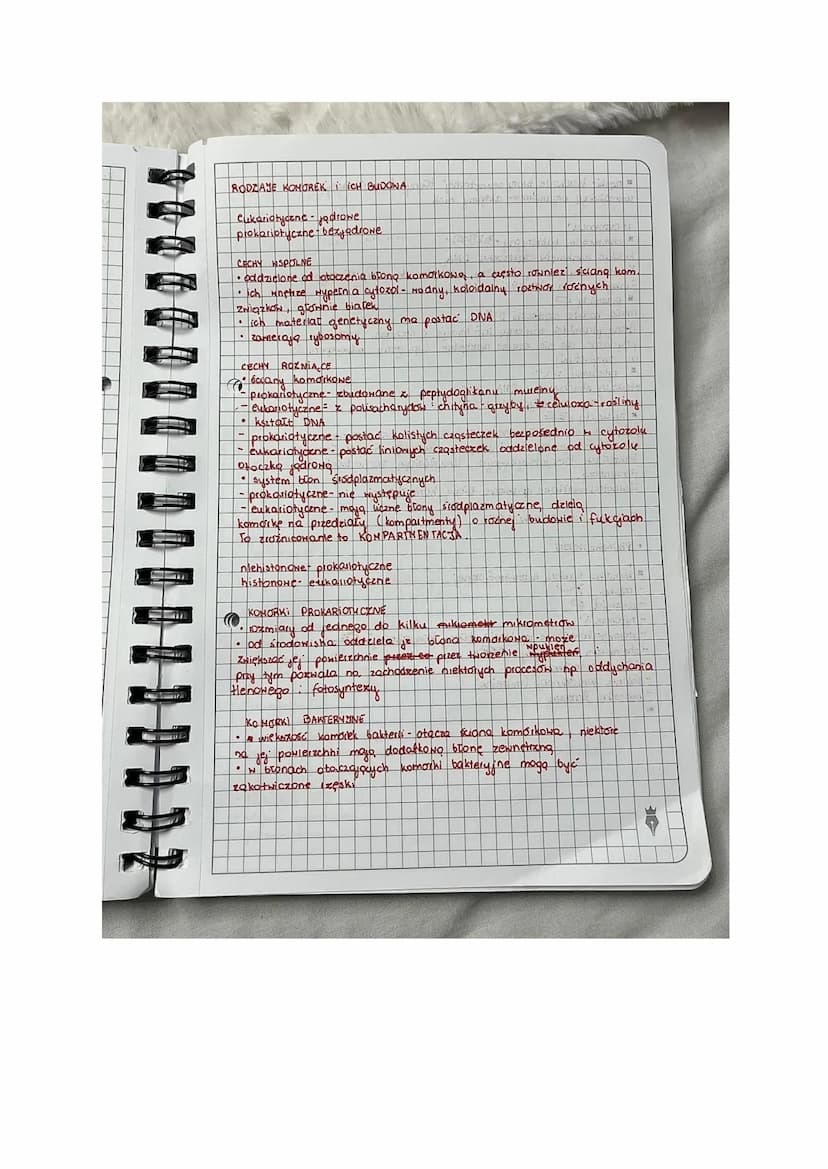 RODZAJE KOMÓREK i ICH BUDOWA
eukariotyczne - jądrowe
prokariotyczne - bezjądrowe
CECHY WSPÓLNE
• oddzielone od otoczenia błoną komórkową, a często również ścianą kom.
• ich wnętrze wypełnia cytozol - wodny, koloidalny roztwór różnych
związków, głównie białek
• ich materiał genetyczny ma postać DNA
• zawierają rybosomy
CECHY RÓŻNIĄCE
• ściany komórkowe
- prokariotyczne - zbudowane z peptydoglikanu mureiny
- eukariotyczne - z polisacharydów: chityna - grzyby, celuloza - rośliny
• kształt DNA
- prokariotyczne - postać kolistych cząsteczek bezpośrednio w cytozolu
- eukariotyczne - postać liniowych cząsteczek oddzielone od cytozolu
otoczką jądrową
• system błon śródplazmatycznych
- prokariotyczne - nie występuje
- eukariotyczne - mają liczne błony śródplazmatyczne, dzielą
komórkę na przedziały (kompartmenty) o różnej budowie i fukcjach
To zróżnicowanie to KOMPARTMENTACJA.
niehistonowe - prokariotyczne
histonowe - eukariotyczne
KOMÓRKI PROKARIOTYCZNE
• rozmiary od jednego do kilku mikrometrów
• od środowiska oddziela je błona komórkowa - może
zwiększać jej powierzchnie przez tworzenie wpukleń
przy tym pozwala na zachodzenie niektórych procesów np oddychania
tlenowego i fotosyntezy
KOMÓRKI BAKTERYJNE
• większość komórek bakterii - otacza ściana komórkowa, niektóre
na jej powierzchni mają dodatkową błonę zewnętrzną
• w błonach otaczających komórki bakteryjne mogą być
zakotwiczone rzęski